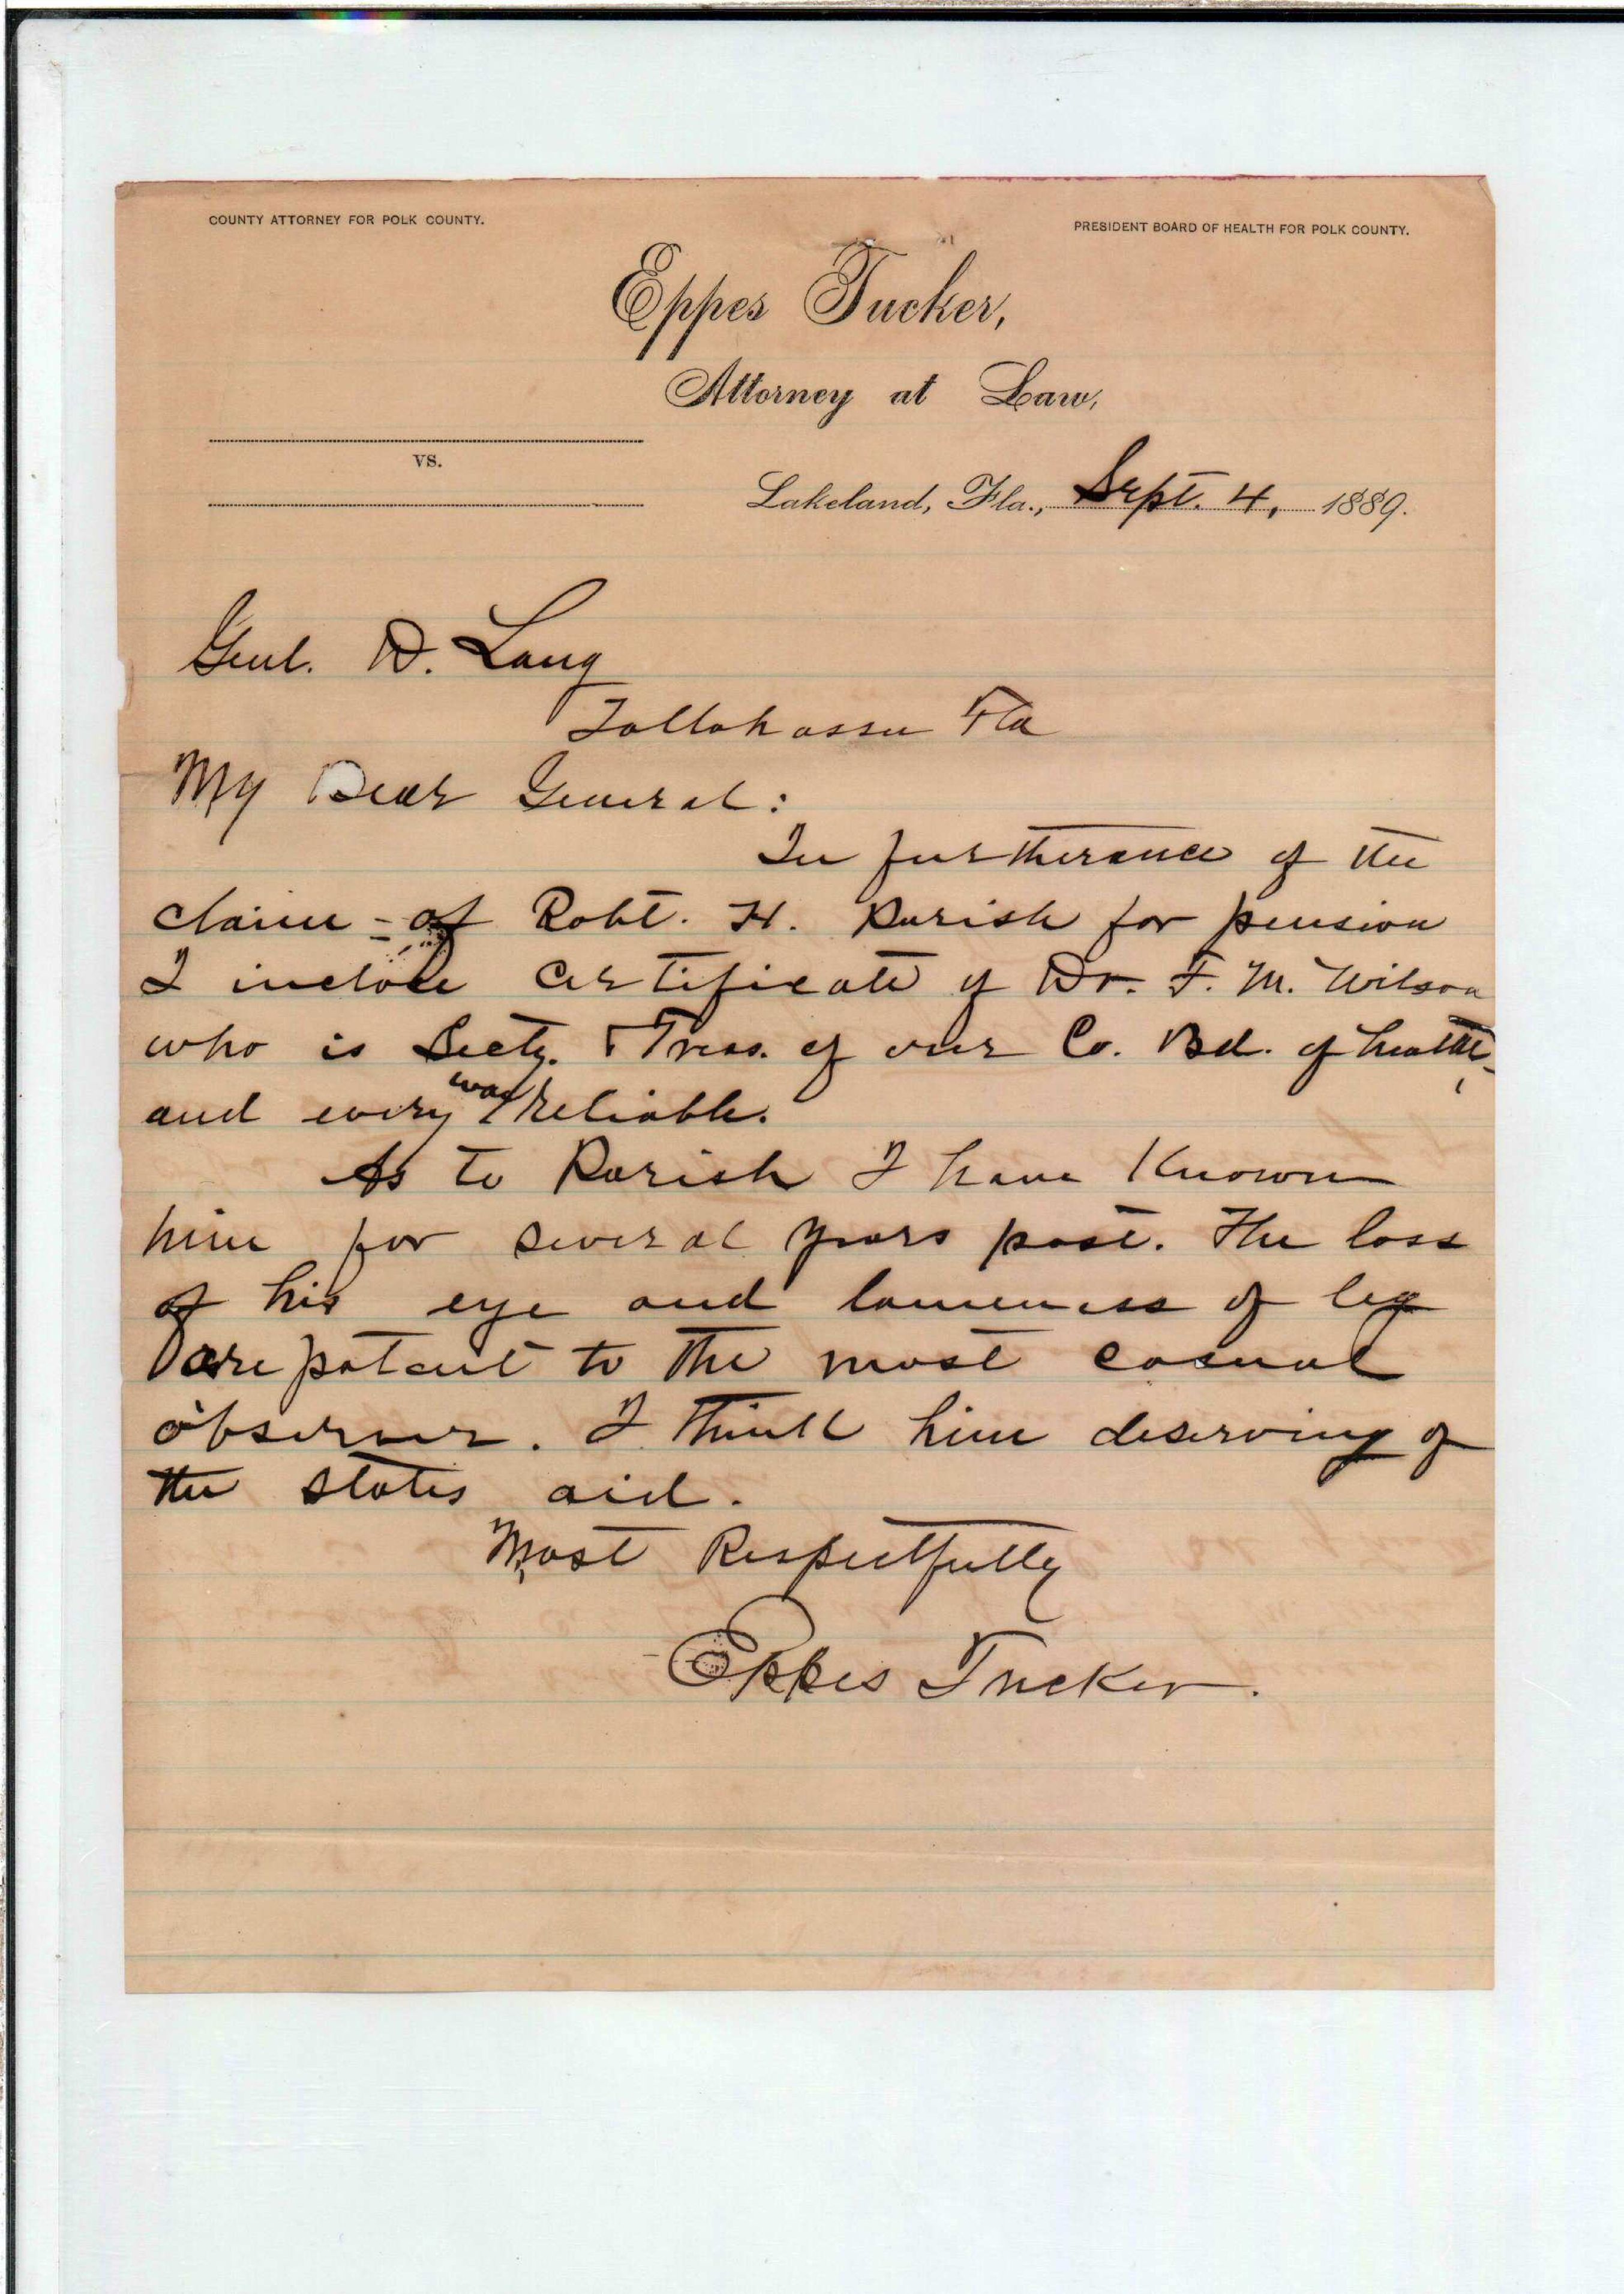 COUNTY ATTORNEY FOR POLK COUNTY.
PRESIDENT BOARD OF HEALTH FOR POLK COUNTY.
Eppes Tucker,
Attorney at Law,
vs.
Lakeland, Fla., Sept. 4, 1889.
Genl. D. Lang
Tallahassee Fla
My Dear General:
In furtherance of the
claim - of Robt. H. Parish for pension
I inclose certificate of Dr. F. M. Wilson
who is Secty. & Treas. of our Co. Bd. of health,
and every way reliable.
As to Parish I have known
him for several years past. The loss
of his eye and lameness of leg
are patent to the most casual
observer. I think him deserving of
the states aid.
Most Respectfully
Eppes Tucker.